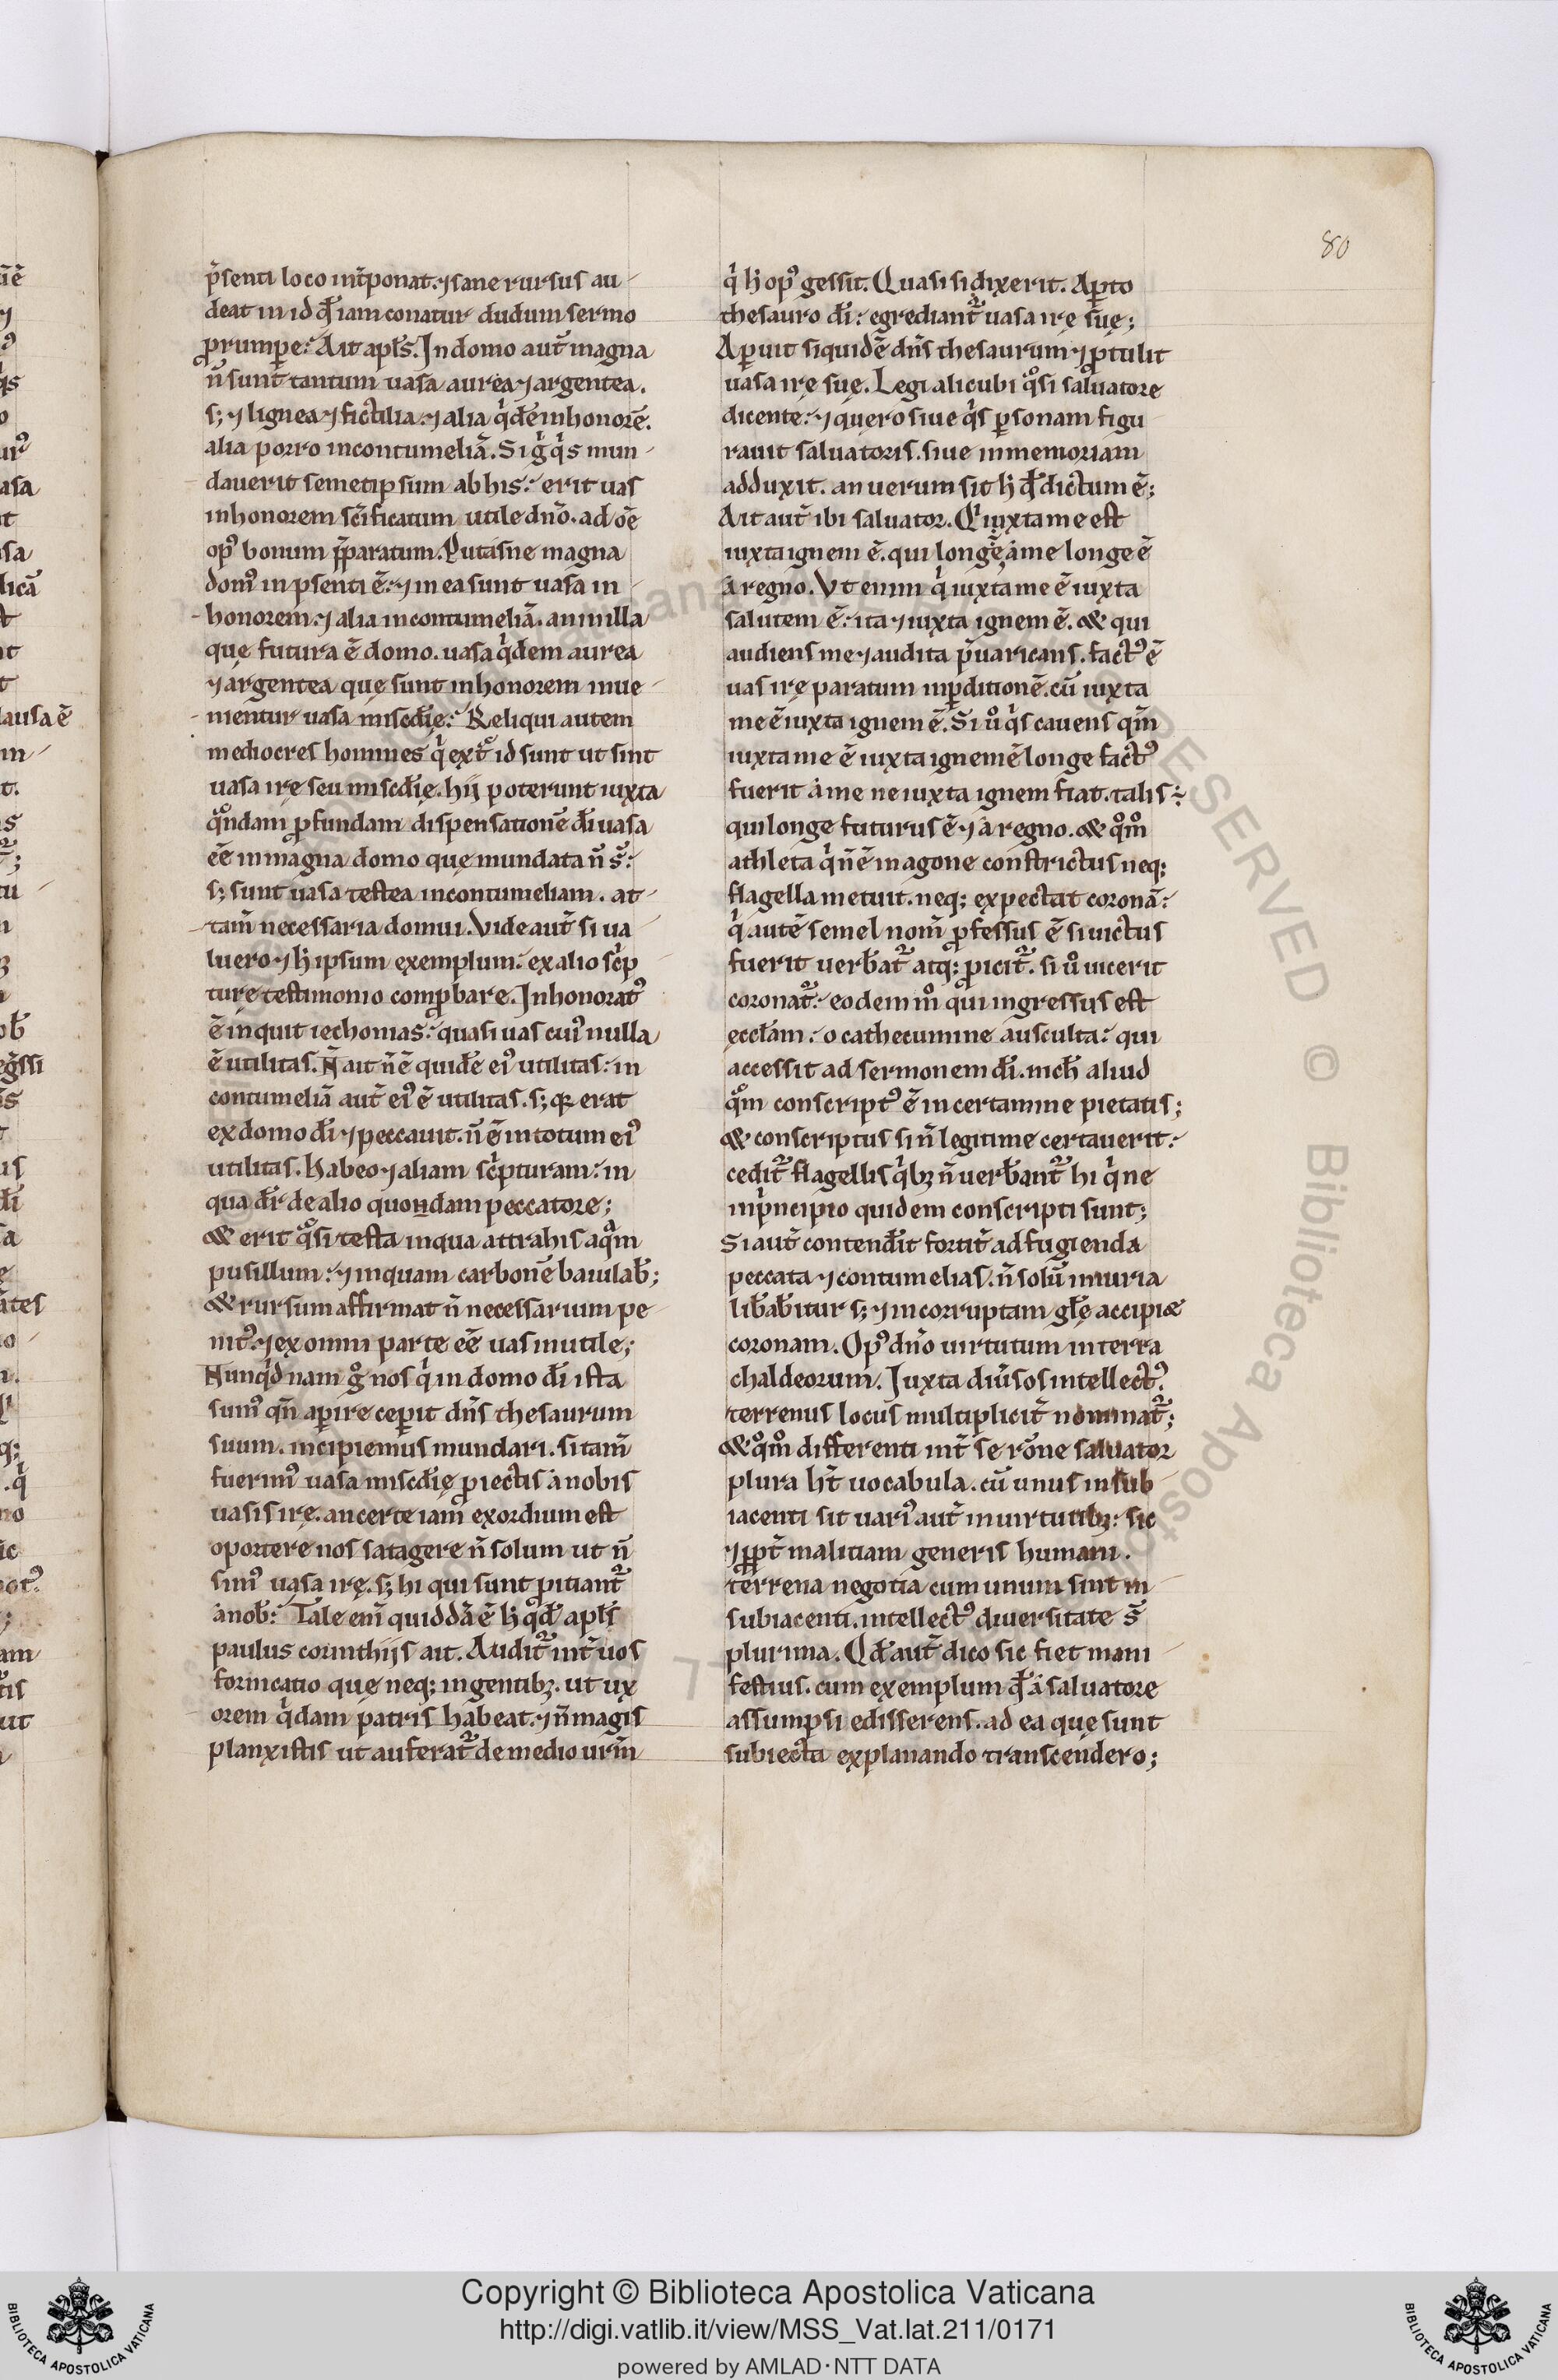 80
p̃senti loco int̃ponat. ⁊ sane rursus au-
deat in id qđ iam conatur dudum sermo
ꝓrumꝑe: Ait apłs. In domo aut̃ magna
ñ sunt tantum uasa aurea ⁊ argentea.
s; ⁊ lignea ⁊ fictilia. ⁊ alia qͥdē in honorē.
alia porro in contumeliā. Si gͥ qͥs mun-
dauerit semetipsum ab his: erit uas
in honorem sc̃ificatum utile dño. ad oē
opꝰ bonum p̃paratum. Putasne magna
domꝰ in p̃senti ē: ⁊ in ea sunt uasa in
honorem. ⁊ alia in contumeliā. an in illa
quę futura ē domo. uasa qͥdem aurea
⁊ argentea quę sunt in honorem inue-
nientur uasa misc̃dię: Reliqui autem
mediocres homines qͥ ext̃ id sunt ut sint
uasa irę seu misc̃dię. hij poterunt iuxta
qͦndam ꝓfundam dispensationē dĩ uasa
eē in magna domo quę mundata ñ s̃:
s; sunt uasa testea in contumeliam. at-
tam̃ necessaria domui. Vide aut̃ si ua-
luero ⁊ h̓ ipsum exemplum: ex alio sc̃p
turę testimonio comꝓbare. Inhonoratꝰ
ē inquit iechonias: quasi uas cuiꝰ nulla
ē utilitas. Ñ ait ñ ē quidē eiꝰ utilitas: in
contumeliā aut̃ eiꝰ ē utilitas. s; qꝛ erat
ex domo dĩ ⁊ peccauit. ñ ē in totum eiꝰ
utilitas. Habeo ⁊ aliam sc̃pturam: in
qua dr̃ de alio quondam peccatore;
& erit qͣsi testa in qua attrahis aqͣm
pusillum: ⁊ in quam carbonē baiulab̃;
& rursum affirmat ñ necessarium pe-
nitꝰ. ⁊ ex omni parte eē uas inutile;
Nunqͥd nam gͦ nos qͥ in domo dĩ ista
sumꝰ qñ aꝑire ceꝑit dñs thesaurum
suum. incipiemus mundari. si tam̃
fuerimꝰ uasa misc̃dię ꝓiectis a nobis
uasis irę. an certe iam exordium est
oportere nos satagere ñ solum ut ñ
simꝰ uasa irę. s; hi qui sunt ꝓitiant̃
a nob̃: Tale eni quiddā ē h̓ qđ apłs
paulus corinthijs ait. Audit̃ int̃ uos
fornicatio quę neq; in gentibꝫ. ut ux
orem qͥdam patris habeat. ⁊ ñ magis
planxistis ut auferat̃ de medio ur̃m
qͥ h̓ opꝰ gessit. Quasi si dixerit. Aꝑto
thesauro dĩ: egrediant̃ uasa irę suę;
Aꝑuit siquidē dñs thesaurum ⁊ ꝓtulit
uasa irę suę. Legi alicubi qͣsi saluatore
dicente: ⁊ quero siue qͥs ꝑsonam figu
rauit saluatoris. siue in memoriam
adduxit. an uerum sit h̓ qđ dictum ē;
Ait aut̃ ibi saluator. Qͥ iuxta me est
iuxta ignem ē. qui longē a me longe ē
a regno. Vt enim qͥ iuxta me ē iuxta
salutem ē: ita ⁊ iuxta ignem ē. & qui
audiens me ⁊ audita p̃uaricans. factꝰ ē
uas irę paratum in ꝑditionē. cū iuxta
me ē iuxta ignem ē. Si uͦ qͥs cauens qm̃
iuxta me ē iuxta ignem ē longe factꝰ
fuerit a me ne iuxta ignem fiat. talis:
qui longe futurus ē ⁊ a regno. & qͦmͦ
athleta qͥ ñ ē in agone constrictus neq;
flagella metuit. neq; expectat coronā:
qͥ autē semel nom̃ ꝓfessus ē si uictus
fuerit uerb̃at̃ atq; ꝓicit̃. si uͦ uicerit
coronat̃: eodem mͦ qui ingressus est
ecclãm: o cathecumine ausculta: qui
accessit ad sermonem dĩ. nich̃ aliud
qͣm conscriptꝰ ē in certamine pietatis;
& conscriptus si ñ legitime certauerit:
cedit̃ flagellis qͥbꝫ ñ uerb̃ant̃ hi qͥ ne
in pͥncipio quidem conscripti sunt;
Si aut̃ contendĩt fortit̃ ad fugienda
peccata ⁊ contumelias. ñ solū iniuria
lib̃ab̃itur s; ⁊ incorruptam głę accipi&
coronam. Opꝰ dño uirtutum in terra
chaldeorum. Iuxta diũsos intellectꝰ.
terrenus locus multiplicit̃ nominat̃;
& qͦmͦ differenti int̃ se rõne saluator
plura ht̃ uocabula. cū unus in sub-
iacenti sit uariꝰ aut̃ in uirtutibꝫ: sic
⁊ ꝓpt̃ malitiam generis humani.
terrena negotia cum unum sint in
subiacenti. intellectꝰ diuersitate s̃
plurima. Qđ aut̃ dico sic fiet mani-
festius. cum exemplum qđ a saluatore
assumpsi edisserens. ad ea quę sunt
subiecta explanando transcendero;
Copyright © Biblioteca Apostolica Vaticana
http://digi.vatlib.it/view/MSS_Vat.lat.211/0171
powered by AMLAD·NTT DATA